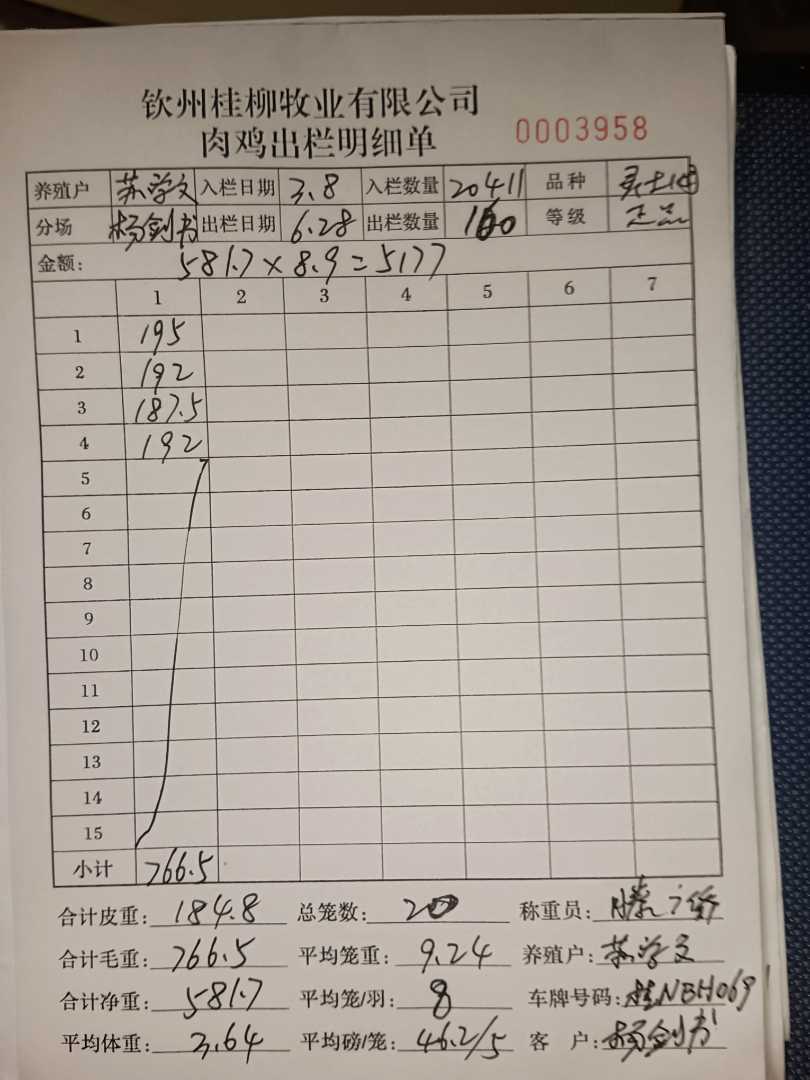 钦州桂柳牧业有限公司
肉鸡出栏明细单 0003958
养殖户 苏学文 入栏日期 3.8 入栏数量 20411 品种
分场 杨剑书 出栏日期 6.28 出栏数量 160 等级 正品
金额: 581.7×8.9=5177
1 2 3 4 5 6 7
1 195
2 192
3 187.5
4 192
5
6
7
8
9
10
11
12
13
14
15
小计 766.5
合计皮重: 184.8 总笼数: 20 称重员:
合计毛重: 766.5 平均笼重: 9.24 养殖户: 苏学文
合计净重: 581.7 平均笼/羽: 8 车牌号码: 桂NBH069
平均体重: 3.64 平均磅/笼: 46.2/5 客 户: 杨剑书